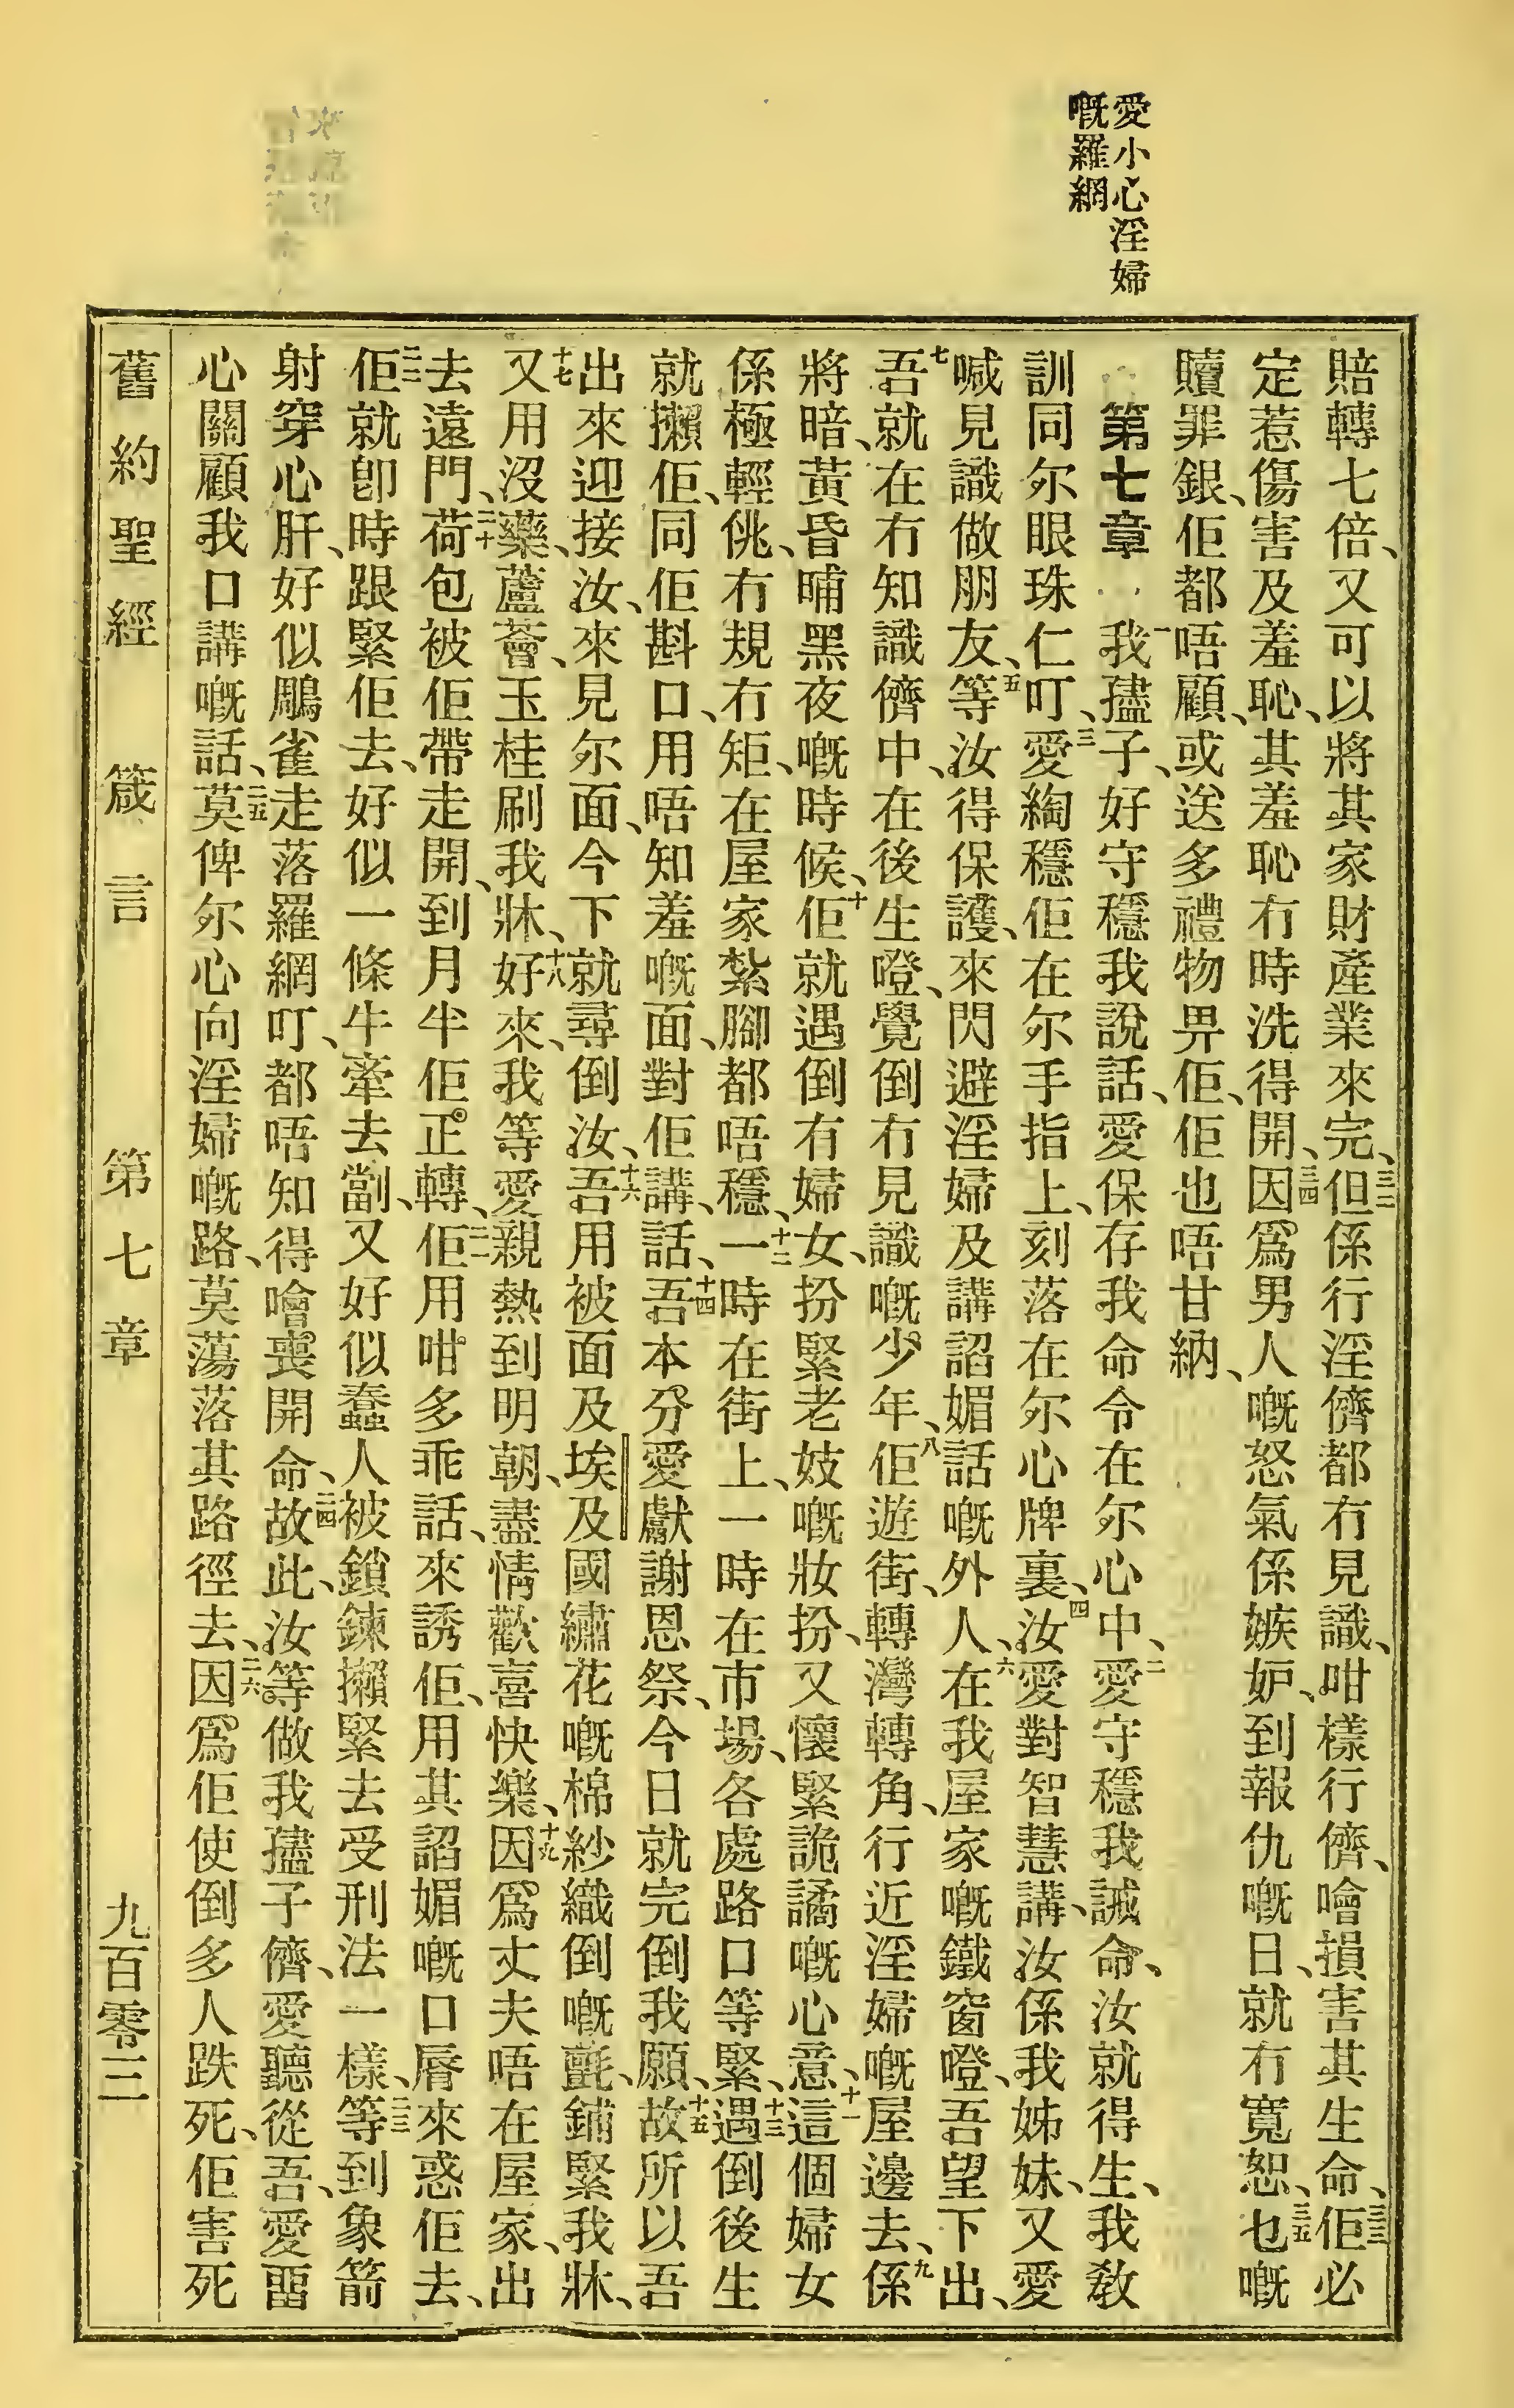 愛小心淫婦
嘅羅網
賠轉七倍、又可以將其家財產業來完、三二但係行淫儕都冇見識、咁樣行儕、噲損害其生命、三三佢必
定惹傷害及羞恥、其羞恥冇時洗得開、三四因爲男人嘅怒氣係嫉妒、到報仇嘅日、就冇寬恕、三五乜嘅
贖罪銀、佢都唔顧、或送多禮物畀佢、佢也唔甘納、
第七章 一我𤘅子、好守穩我說話、愛保存我命令在尔心中、二愛守穩我誡命、汝就得生、我敎
訓同尔眼珠仁叮、三愛綯穩佢在尔手指上、刻落在尔心牌裏、四汝愛對智慧講、汝係我姊妹、又愛
喊見識做朋友、五等汝得保護、來閃避淫婦及講諂媚話嘅外人、六在我屋家嘅鐵窗噔、吾望下出、
七吾就在冇知識儕中、在後生噔、覺倒冇見識嘅少年、八佢遊街、轉灣轉角、行近淫婦嘅屋邊去、九係
將暗、黃昏晡黑夜嘅時候、十佢就遇倒有婦女、扮緊老妓嘅妝扮、又懷緊詭譎嘅心意、十一這個婦女
係極輕佻、冇規冇矩、在屋家紮腳都唔穩、十二一時在街上、一時在市場、各處路口等緊、十三遇倒後生
就攋佢、同佢斟口、用唔知羞嘅面、對佢講話、十四吾本分愛獻謝恩祭、今日就完倒我願、十五故所以吾
出來迎接汝、來見尔面、今下就尋倒汝、十六吾用被面及埃及國繡花嘅棉紗織倒嘅氈、鋪緊我牀、
十七又用沒藥、蘆薈、玉桂刷我牀、十八好來、我等愛親熱到明朝、盡情歡喜快樂、十九因爲丈夫唔在屋家、出
去遠門、二十荷包被佢帶走開、到月半佢正轉、二一佢用咁多乖話、來誘佢、用其諂媚嘅口脣來惑佢去、
二二佢就卽時跟緊佢去、好似一條牛牽去劏、又好似蠢人被鎖鍊攋緊去受刑法一樣、二三等到象箭
射穿心肝、好似鵰雀走落羅網叮、都唔知得噲喪開命、二四故此、汝等做我𤘅子儕、愛聽從吾、愛畱
心關顧我口講嘅話、二五莫俾尔心向淫婦嘅路、莫蕩落其路徑去、二六因爲佢使倒多人跌死、佢害死
舊約聖經 箴言 第七章 九百零三